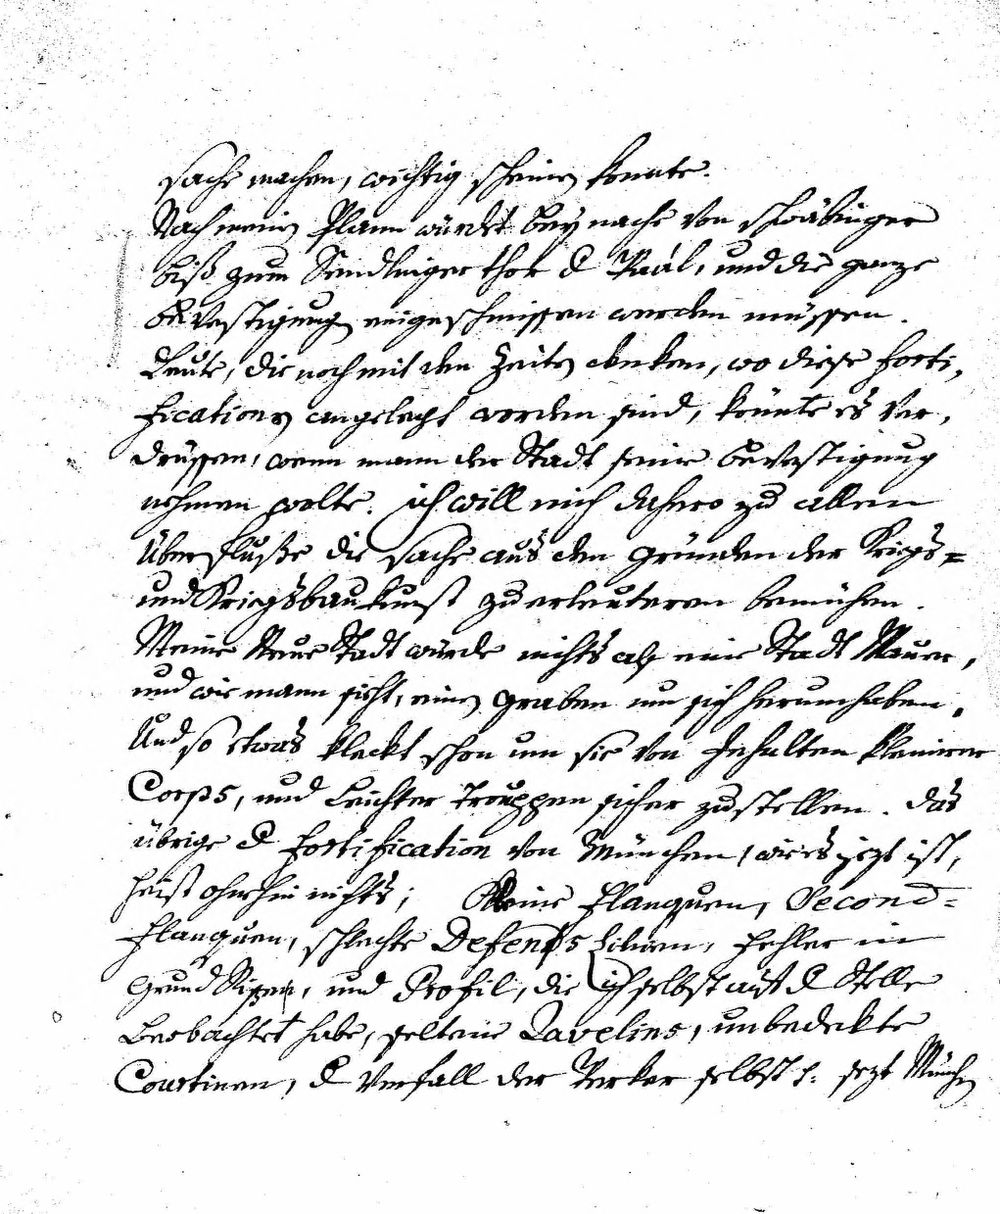 sache machen, wichtig scheinen konnte.
Nach meinen Plann würdet beynache von schwäbinger
biß zum Sendlinger thor d Waal, und die ganze
bevestigung eingeschmissen werden müssen.
Leute, die noch mit den Zeiten denken, wo diese Forti,
ficationen angelegt worden sind, könnte es ver,
drüssen, wenn mann der Stadt seine bevestigung
nehmen wolte. ich will mich dahero zu allem
Überfluße die sache aus den gründen der Kriegs=
und Kriegsbaukunst zu erleuteren bemühen.
Meine Neue Stadt würde nichts als eine Stadt Mauer,
und wie mann sieht, einen graben um sich herumhaben.
Und so etwas kleckt schon um sie von Inhalten kleinerer
Corps, und Leichter Trouppen sicher zustellen. das
übrige d Fortification von München, wie es jezt ist,
heist ohnehin nichts; Kleine Flanquen, Second=
Flanquen, schlechte Defens Linien, Fehler im
Grund Rissen, und Profil, die ich selbst auf d Stelle
Beobachtet habe, seltene Ravelins, unbedekte
Courtinen, d Verfall der Werker selbst p: sezt München